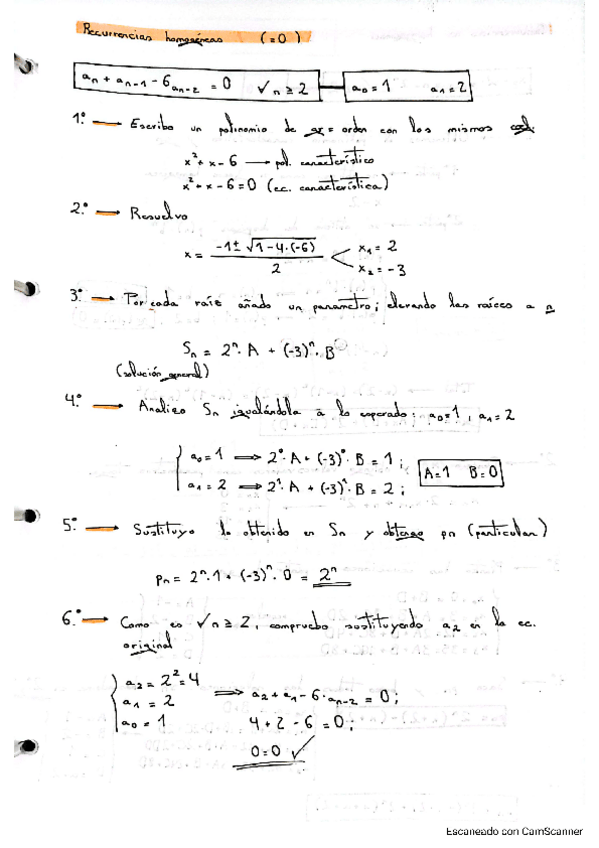 Recurrencias homogéneas (=0)
aₙ + aₙ₋₁ - 6aₙ₋₂ = 0 ✓n ≥ 2 a₀ = 1 a₁ = 2
1.º → Escribo un polinomio de gr = orden con los mismos coef.
x² + x - 6 → pol. característico
x² + x - 6 = 0 (ec. característica)
2.º → Resuelvo
x = (-1 ± √(1 - 4·(-6))) / 2 x₁ = 2 x₂ = -3
3.º → Por cada raíz añado un parámetro; elevando las raíces a n
Sₙ = 2ⁿ · A + (-3)ⁿ · B
(solución general)
4.º → Analizo Sₙ igualándola a lo esperado: a₀ = 1, a₁ = 2
a₀ = 1 ⟹ 2⁰ · A + (-3)⁰ · B = 1;
A = 1 B = 0
a₁ = 2 ⟹ 2¹ · A + (-3)¹ · B = 2;
5.º → Sustituyo lo obtenido en Sₙ y obtengo pₙ (particular)
pₙ = 2ⁿ · 1 + (-3)ⁿ · 0 = 2ⁿ
6.º → Como es ✓n ≥ 2, compruebo sustituyendo a₂ en la ec.
original
a₂ = 2² = 4
a₁ = 2 ⟹ a₂ + a₁ - 6 · aₙ₋₂ = 0;
a₀ = 1 4 + 2 - 6 = 0;
0 = 0 ✓
Escaneado con CamScanner